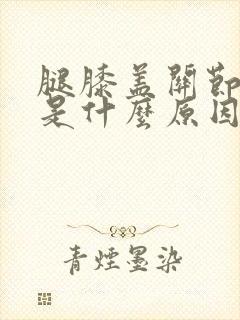 腿膝盖關節
是什麼原因
青煙墨染